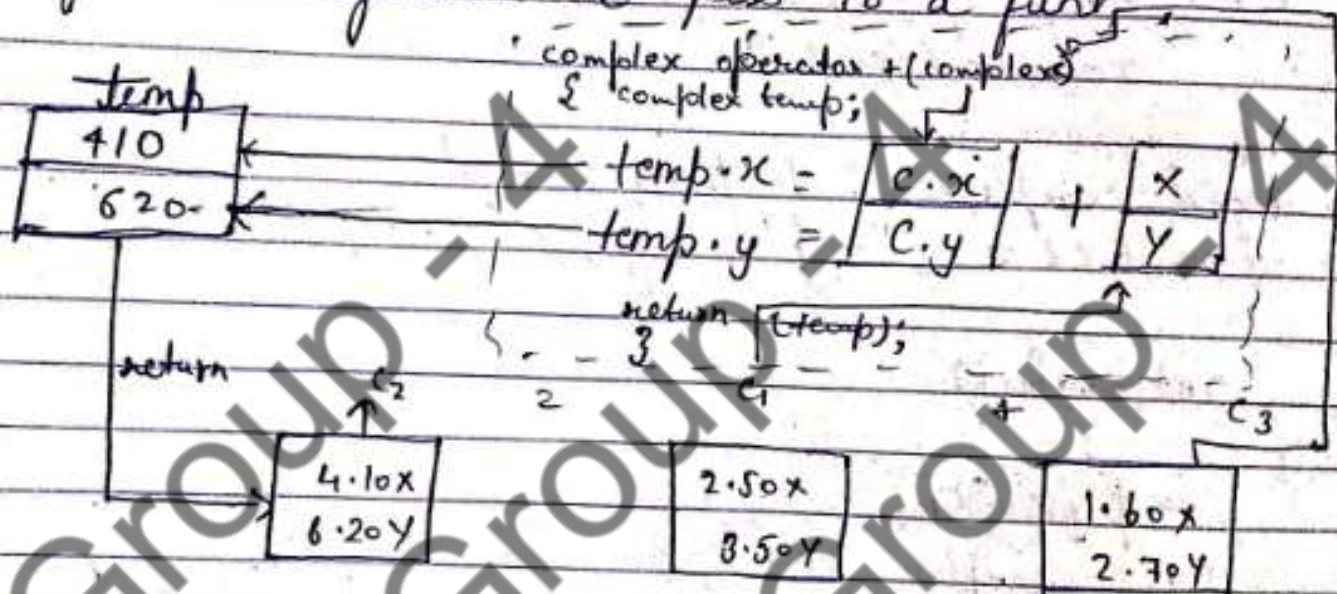 pass to a func
complex operator + (complex c)
{ complex temp;
temp
410
620-
temp.x = c.x + X
temp.y = C.y Y
return (temp);
}
return
C2 2 C1 + C3
4.10X 2.50X 1.60X
6.20Y 3.50Y 2.70Y
Group - 4
Group - 4